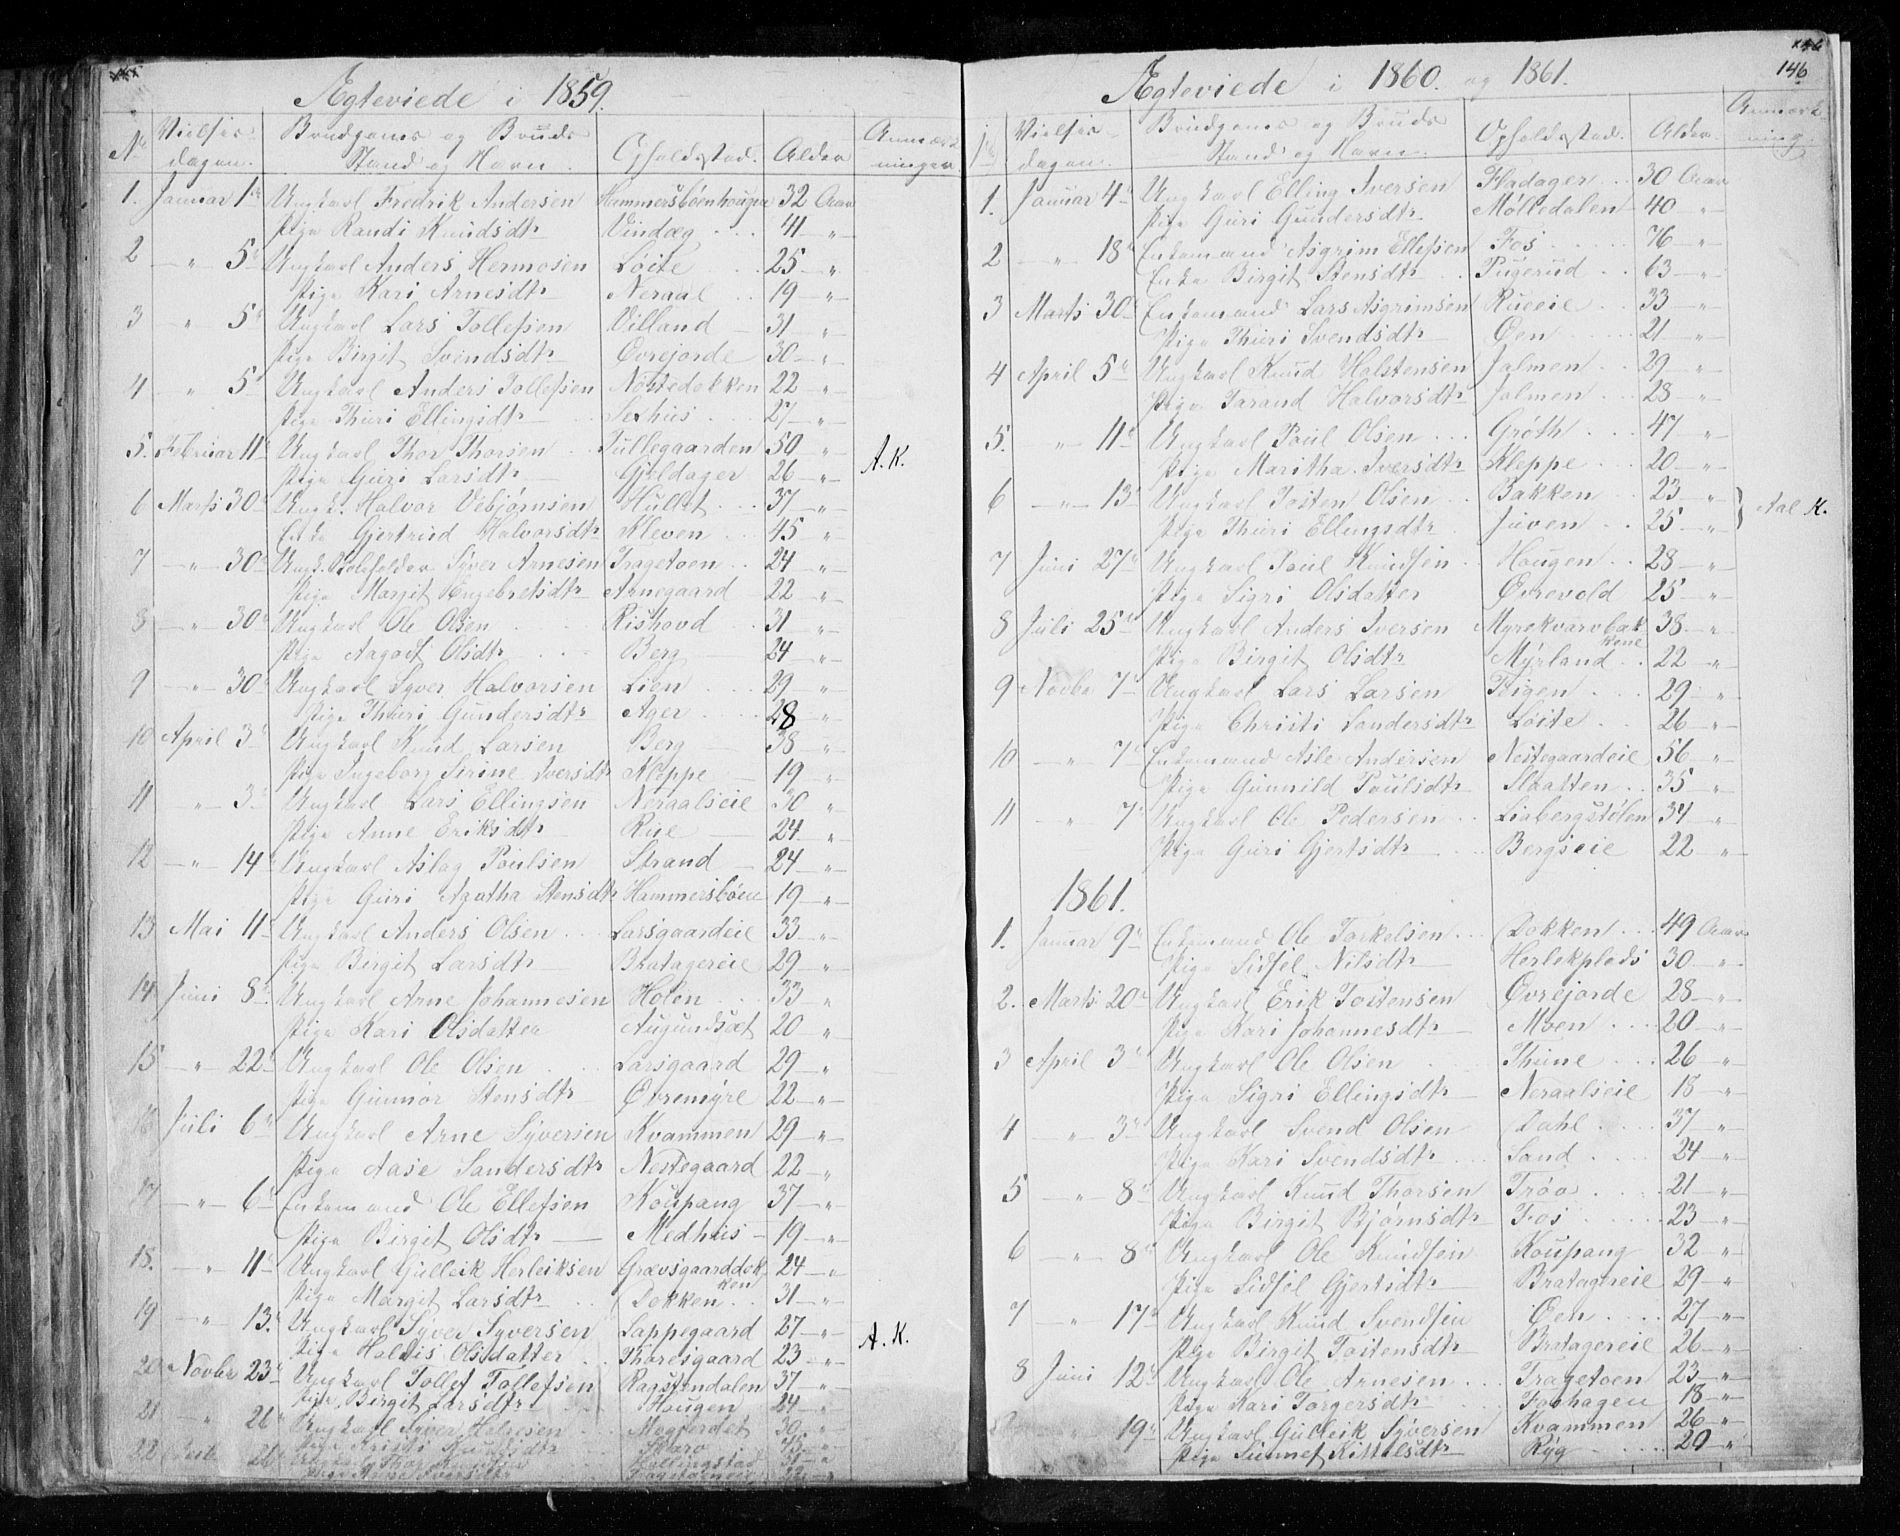 Ægteviede i 1859.
No Vielses- dagen. Brudgoms og Bruds Stand og Navn. Opholdsstad. Alder Anmærk- ninger
1. Januar 1ste Ungkarl Fredrik Andersen Hammersbøenhougen 32 Aar
Pige Randi Knudsdtr Vindæg 41 - " -
2 - " - 5te Ungkarl Anders Hermosen Løite 25 - " -
Pige Kari Arnesdtr Neraal 19 - " -
3 - " - 5te Ungkarl Lars Tollefsen Villand 31 - " -
Pige Birgit Svendsdtr Øvrejorde 30 - " -
4 - " - 5te Ungkarl Anders Tollefsen Nostedokken 22 - " -
Pige Thuri Ellingsdtr Sexhus 27 - " -
5. Februar 11te Ungkarl Thor Thorsen Tullegaarden 50 - " - A.K.
Pige Guri Larsdtr Gjeldager 26 - " -
6 Marts 30te Ungk. Halvor Vebjørnsen Hullet 37 - " -
Enke Gjertrud Halvorsdtr Kleven 45 - " -
7 - " - 30te Ungk. Selveier Syver Arnesen Tragetoen 24 - " -
Pige Margit Engebretsdtr Arnegaard 22 - " -
8 - " - 30te Ungkarl Ole Olsen Rishovd 31 - " -
Pige Aagot Olsdtr Berg 24 - " -
9 - " - 30te Ungkarl Syver Halvorsen Lien 29 - " -
Pige Thuri Gundersdtr Ager 28 - " -
10 April 3die Ungkarl Knud Larsen Berg 38 - " -
Pige Ingeborg Serine Iversdtr Kleppe 19 - " -
11 - " - 3die Ungkarl Lars Ellingsen Neraalseie 30 - " -
Pige Anne Eriksdtr Rue 24 - " -
12 - " - 14de Ungkarl Aslag Poulsen Strand 24 - " -
Pige Guri Agatha Stensdtr Hammersbøen 19 - " -
13 Mai 11te Ungkarl Anders Olsen Larsgaardeie 33 - " -
Pige Birgit Larsdtr Bratagereie 29 - " -
14 Juni 8de Ungkarl Arne Johannesen Holen 33 - " -
Pige Kari Olsdatter Augundsæt 20 - " -
15 - " - 22de Ungkarl Ole Olsen Larsgaard 29 - " -
Pige Gunnor Stensdtr Øvremyre 22 - " -
16 Juli 6te Ungkarl Arne Syversen Kvammen 29 - " -
Pige Aase Sandersdtr Nestegaard 22 - " -
17 - " - 6te Enkemand Ole Ellefsen Koupang 37 - " -
Pige Birgit Olsdtr Medhus 19 - " -
18. - " - 11te Ungkarl Gulleik Herleiksen Grævsgaarddok- ken 24 - " -
Pige Margit Larsdtr Dokken 31 - " -
19 - " - 13de Ungkarl Syver Syversen Lappegaard 27 - " - A.K.
Pige Haldis Olsdatter Thoresgaard 23 - " -
20 Novbr 23de Ungkarl Tollef Tollefsen Ragstendalen 37 - " -
Pige Birgit Larsdtr Hougen 24 - " -
21 - " - 26de Ungkarl Syver Halvorsen 30 - " -
Pige Kristi Knudsdtr
22 Ungkarl Thor Knudsen Hallingstad 31 - " -
146
Ægteviede i 1860. og 1861.
No Vielses- dagen. Brudgoms og Bruds Stand og Navn. Opholdsstad. Alder. Anmærk- ning.
1. Januar 4de Ungkarl Elling Iversen Fladager 30 Aar
Pige Guri Gundersdtr Mølledalen 40 - " -
2 - " - 18de Enkemand Asgrim Ellefsen Fos 76 - " -
Enke Birgit Stensdtr Pugerud 63 - " -
3 Marts 30te Enkemand Lars Asgrimsen Rueeie 33 - " -
Pige Thuri Svendsdtr Øen 21 - " -
4 April 5te Ungkarl Knud Halstensen Jalmen 29 - " -
Pige Tarand Halvorsdtr Jalmen 28 - " -
5. - " - 11te Ungkarl Paul Olsen Grøth 47 - " -
Pige Maritha Iversdtr Kleppe 20 - " -
6 - " - 13de Ungkarl Tosten Olsen Bakken 23 - " - } Aal K.
Pige Thuri Ellingsdtr Juven 25 - " -
7 Juni 27de Ungkarl Paul Knudsen Hougen 28 - " -
Pige Sigri Olsdatter Øvrevold 25 - " -
8 Juli 25de Ungkarl Anders Iversen Myrekvarvbak- kene 38 - " -
Pige Birgit Olsdtr Myrland 22 - " -
9 Novbr 7de Ungkarl Lars Larsen Teigen 29 - " -
Pige Christi Sandersdtr Løite 26 - " -
10 - " - 7de Enkemand Asle Andersen Nestegaardeie 56 - " -
Pige Gunnild Poulsdtr Slaatten 35 - " -
11 - " - 7de Ungkarl Ole Pedersen Liabergstølen 34 - " -
Pige Guri Gjertsdtr Bergseie 22 - " -
1861.
1. Januar 9de Enkemand Ole Torkelsen Dokken 49 Aar
Pige Sidsel Nilsdtr Herlekplads 30 - " -
2. Marts 20de Ungkarl Erik Tostensen Øvrejorde 28 - " -
Pige Kari Johannesdtr Moen 20 - " -
3 April 3die Ungkarl Ole Olsen Thune 26 - " -
Pige Sigri Ellingsdtr Neraalseie 18 - " -
4 - " - 3die Ungkarl Svend Olsen Dahl 37 - " -
Pige Kari Svendsdtr Sand 24 - " -
5 - " - 8de Ungkarl Knud Thorsen Trøo 21 - " -
Pige Birgit Bjørnsdtr Fos 23 - " -
6 - " - 8de Ungkarl Ole Knudsen Koupang 32 - " -
Pige Sidsel Gjertsdtr Bratagereie 29 - " -
7 - " - 17de Ungkarl Knud Svendsen Øen 27 - " -
Pige Birgit Tostensdtr Bratagereie 26 - " -
8 Juni 12te Ungkarl Ole Arnesen Tragetoen 23 - " -
Pige Kari Torgersdtr Foshagen 18 - " -
19de Ungkarl Gulleik Syversen Kvammen 26 - " -
Pige Sunnef Kittelsdtr Ryg 20 - " -